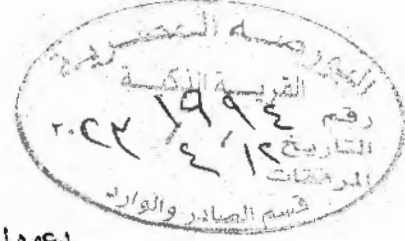 البورصة المصرية
القرية الذكية
رقم ١٩٩٤
التاريخ ١٢ / ٤ / ٢٠٢٣
المرفقات
قسم الصادر والوارد